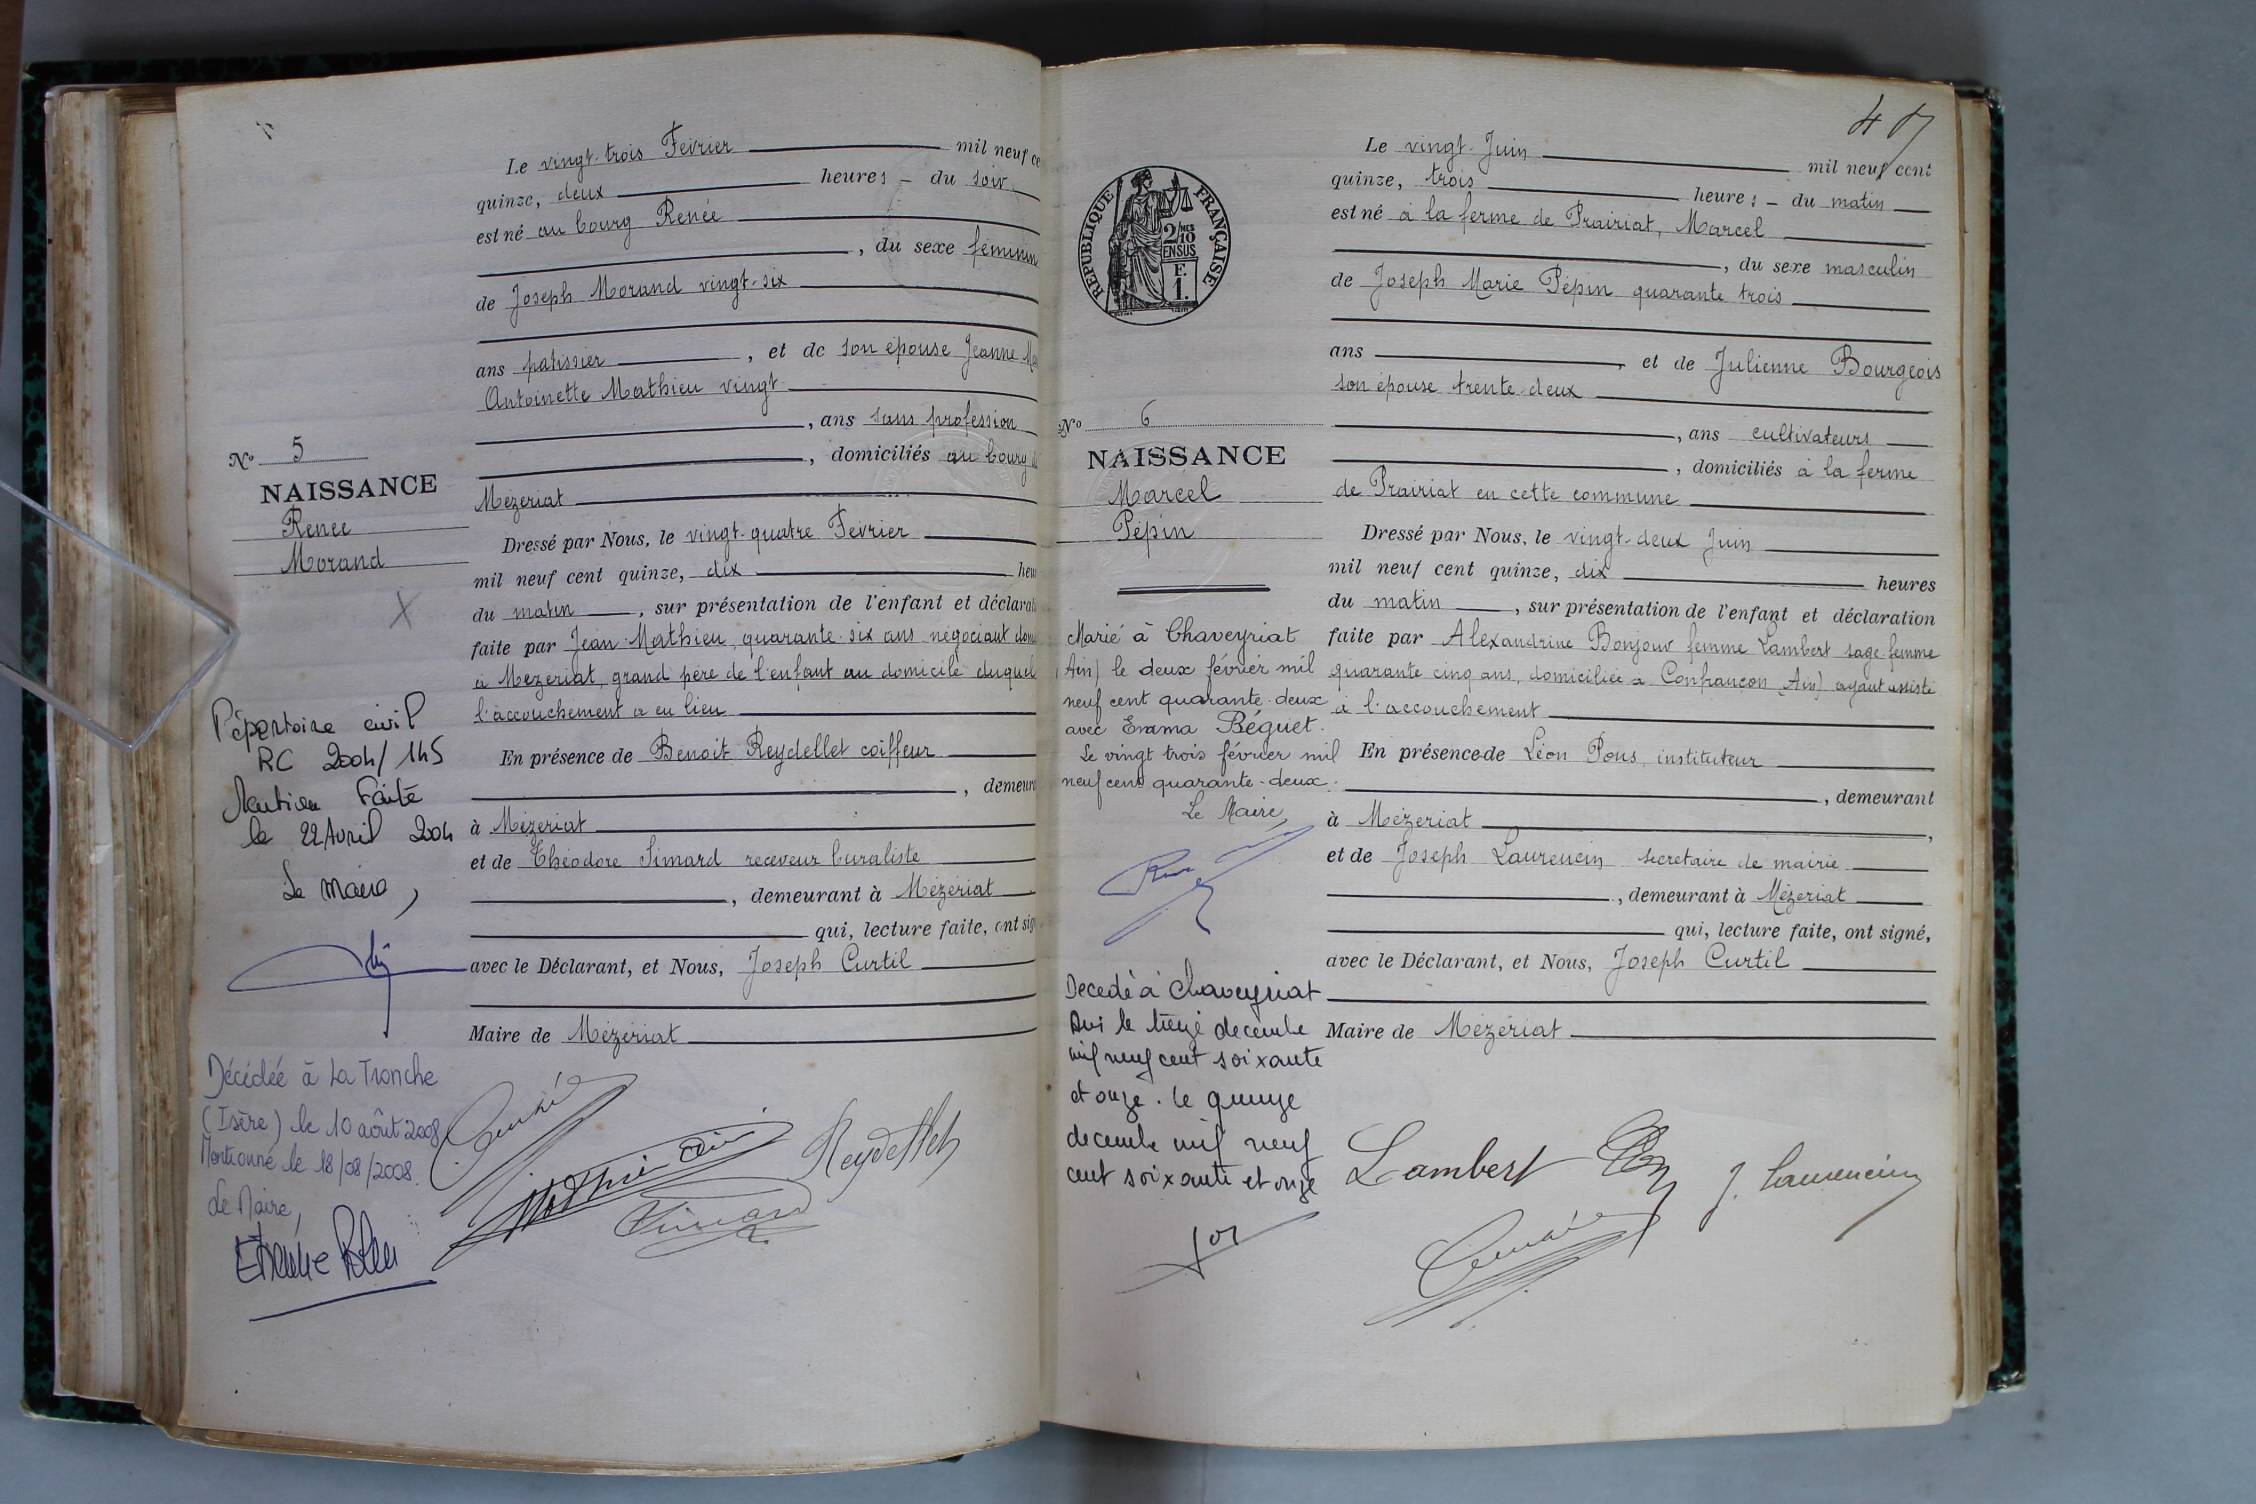 Le vingt-trois Fevrier mil neuf ce
quinze, deux heures - du soir
est né au bourg Renée
, du sexe féminin
de Joseph Morand vingt-six
ans patissier , et de son épouse Jeanne Ma
Antoinette Mathieu vingt
, ans sans profession
, domiciliés au bourg de
Mézériat
Dressé par Nous, le vingt-quatre Fevrier
mil neuf cent quinze, dix heu
du matin , sur présentation de l'enfant et déclarat
faite par Jean Mathieu, quarante-six ans négociant dom
à Mézériat, grand père de l'enfant au domicile duquel
l'accouchement a eu lieu
En présence de Benoit Reydellet coiffeur
, demeura
à Mézériat
et de Théodore Simard receveur buraliste
, demeurant à Mézériat
qui, lecture faite, ont sig
avec le Déclarant, et Nous, Joseph Curtil
Maire de Mézériat
Nº 5
NAISSANCE
Renée
Morand
X
Répertoire civil
RC 2004/145
Mention faite
le 22 Avril 2004
Le maire,
Décédée à La Tronche
(Isère) le 10 août 2008
Mentionné le 18/08/2008.
Le Maire,
Reydellet
Simard
RÉPUBLIQUE FRANÇAISE
2/10 MES
EN SUS
F.
1.
Nº 6
NAISSANCE
Marcel
Pépin
Marié à Chaveyriat
(Ain) le deux février mil
neuf cent quarante-deux
avec Emma Béguet.
Le vingt trois février mil
neuf cent quarante-deux.
Le Maire,
Decedé à Chaveyriat
Ain le treize decembre
mil neuf cent soixante
et onze. le quinze
decembre mil neuf
cent soixante et onze
Le vingt Juin mil neuf cent
quinze, trois heures - du matin
est né à la ferme de Prairiat, Marcel
, du sexe masculin
de Joseph Marie Pépin quarante trois
ans , et de Julienne Bourgeois
son épouse trente-deux
, ans cultivateurs
, domiciliés à la ferme
de Prairiat en cette commune
Dressé par Nous, le vingt-deux Juin
mil neuf cent quinze, dix heures
du matin , sur présentation de l'enfant et déclaration
faite par Alexandrine Bonjour femme Lambert sage-femme
quarante cinq ans, domiciliée à Confrançon (Ain) ayant assisté
à l'accouchement
En présence de Léon Pons, instituteur
, demeurant
à Mézériat ,
et de Joseph Laurencin secretaire de mairie
, demeurant à Mézériat
qui, lecture faite, ont signé,
avec le Déclarant, et Nous, Joseph Curtil
Maire de Mézériat
Lambert
J. Laurencin